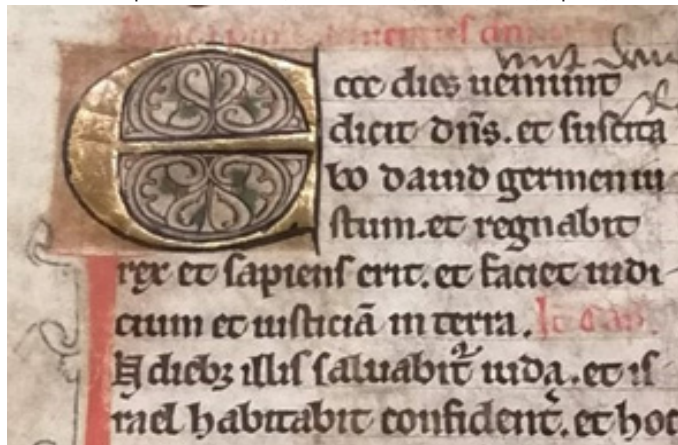 Ecce dies ueniunt
dicit dñs. et suscita
bo dauid germen iu
stum. et regnabit
rex et sapiens erit. et faciet iudi
cium et iusticiã in terra.
In dieb; illis saluabit᷑ iuda. et is
rael habitabit confident̾. et hoc